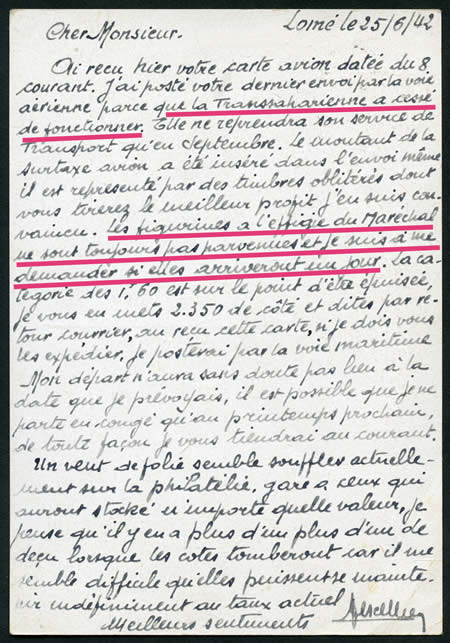 Lomé le 25/6/42
Cher Monsieur.
Ai recu hier votre carte avion datée du 8
courant. J'ai posté votre dernier envoi par la voie
aérienne parce que la Transsaharienne a cessé
de fonctionner. Elle ne reprendra son service de
Transport qu'en Septembre. Le montant de la
surtaxe avion a été inséré dans l'envoi même
il est représenté par des timbres oblitérés dont
vous tirerez le meilleur profit j'en suis con-
vaincu. Les figurines a l'effigie du Maréchal
ne sont toujours pas parvenues et je suis à me
demander si elles arriveront un jour. La ca-
tégorie des 1,60 est sur le point d'être épuisée,
je vous en mets 2.350 de côté et dites par re-
tour courrier, au recu cette carte, si je dois vous
les expédier. Je posterai par la voie maritime
Mon départ n'aura sans doute pas lieu à la
date que je prévoyais, il est possible que je ne
parte en congé qu'au printemps prochain,
de toute façon je vous tiendrai au courant.
Un vent de folie semble souffler actuelle-
ment sur la philatélie, gare a ceux qui
auront stocké n'importe quelle valeur, je
pense qu'il y en a plus d'un plus d'un de
deçu lorsque les cotes tomberont car il me
semble difficile qu'elles puissent se mainte-
nir indéfiniment au taux actuel
Meilleurs sentiments